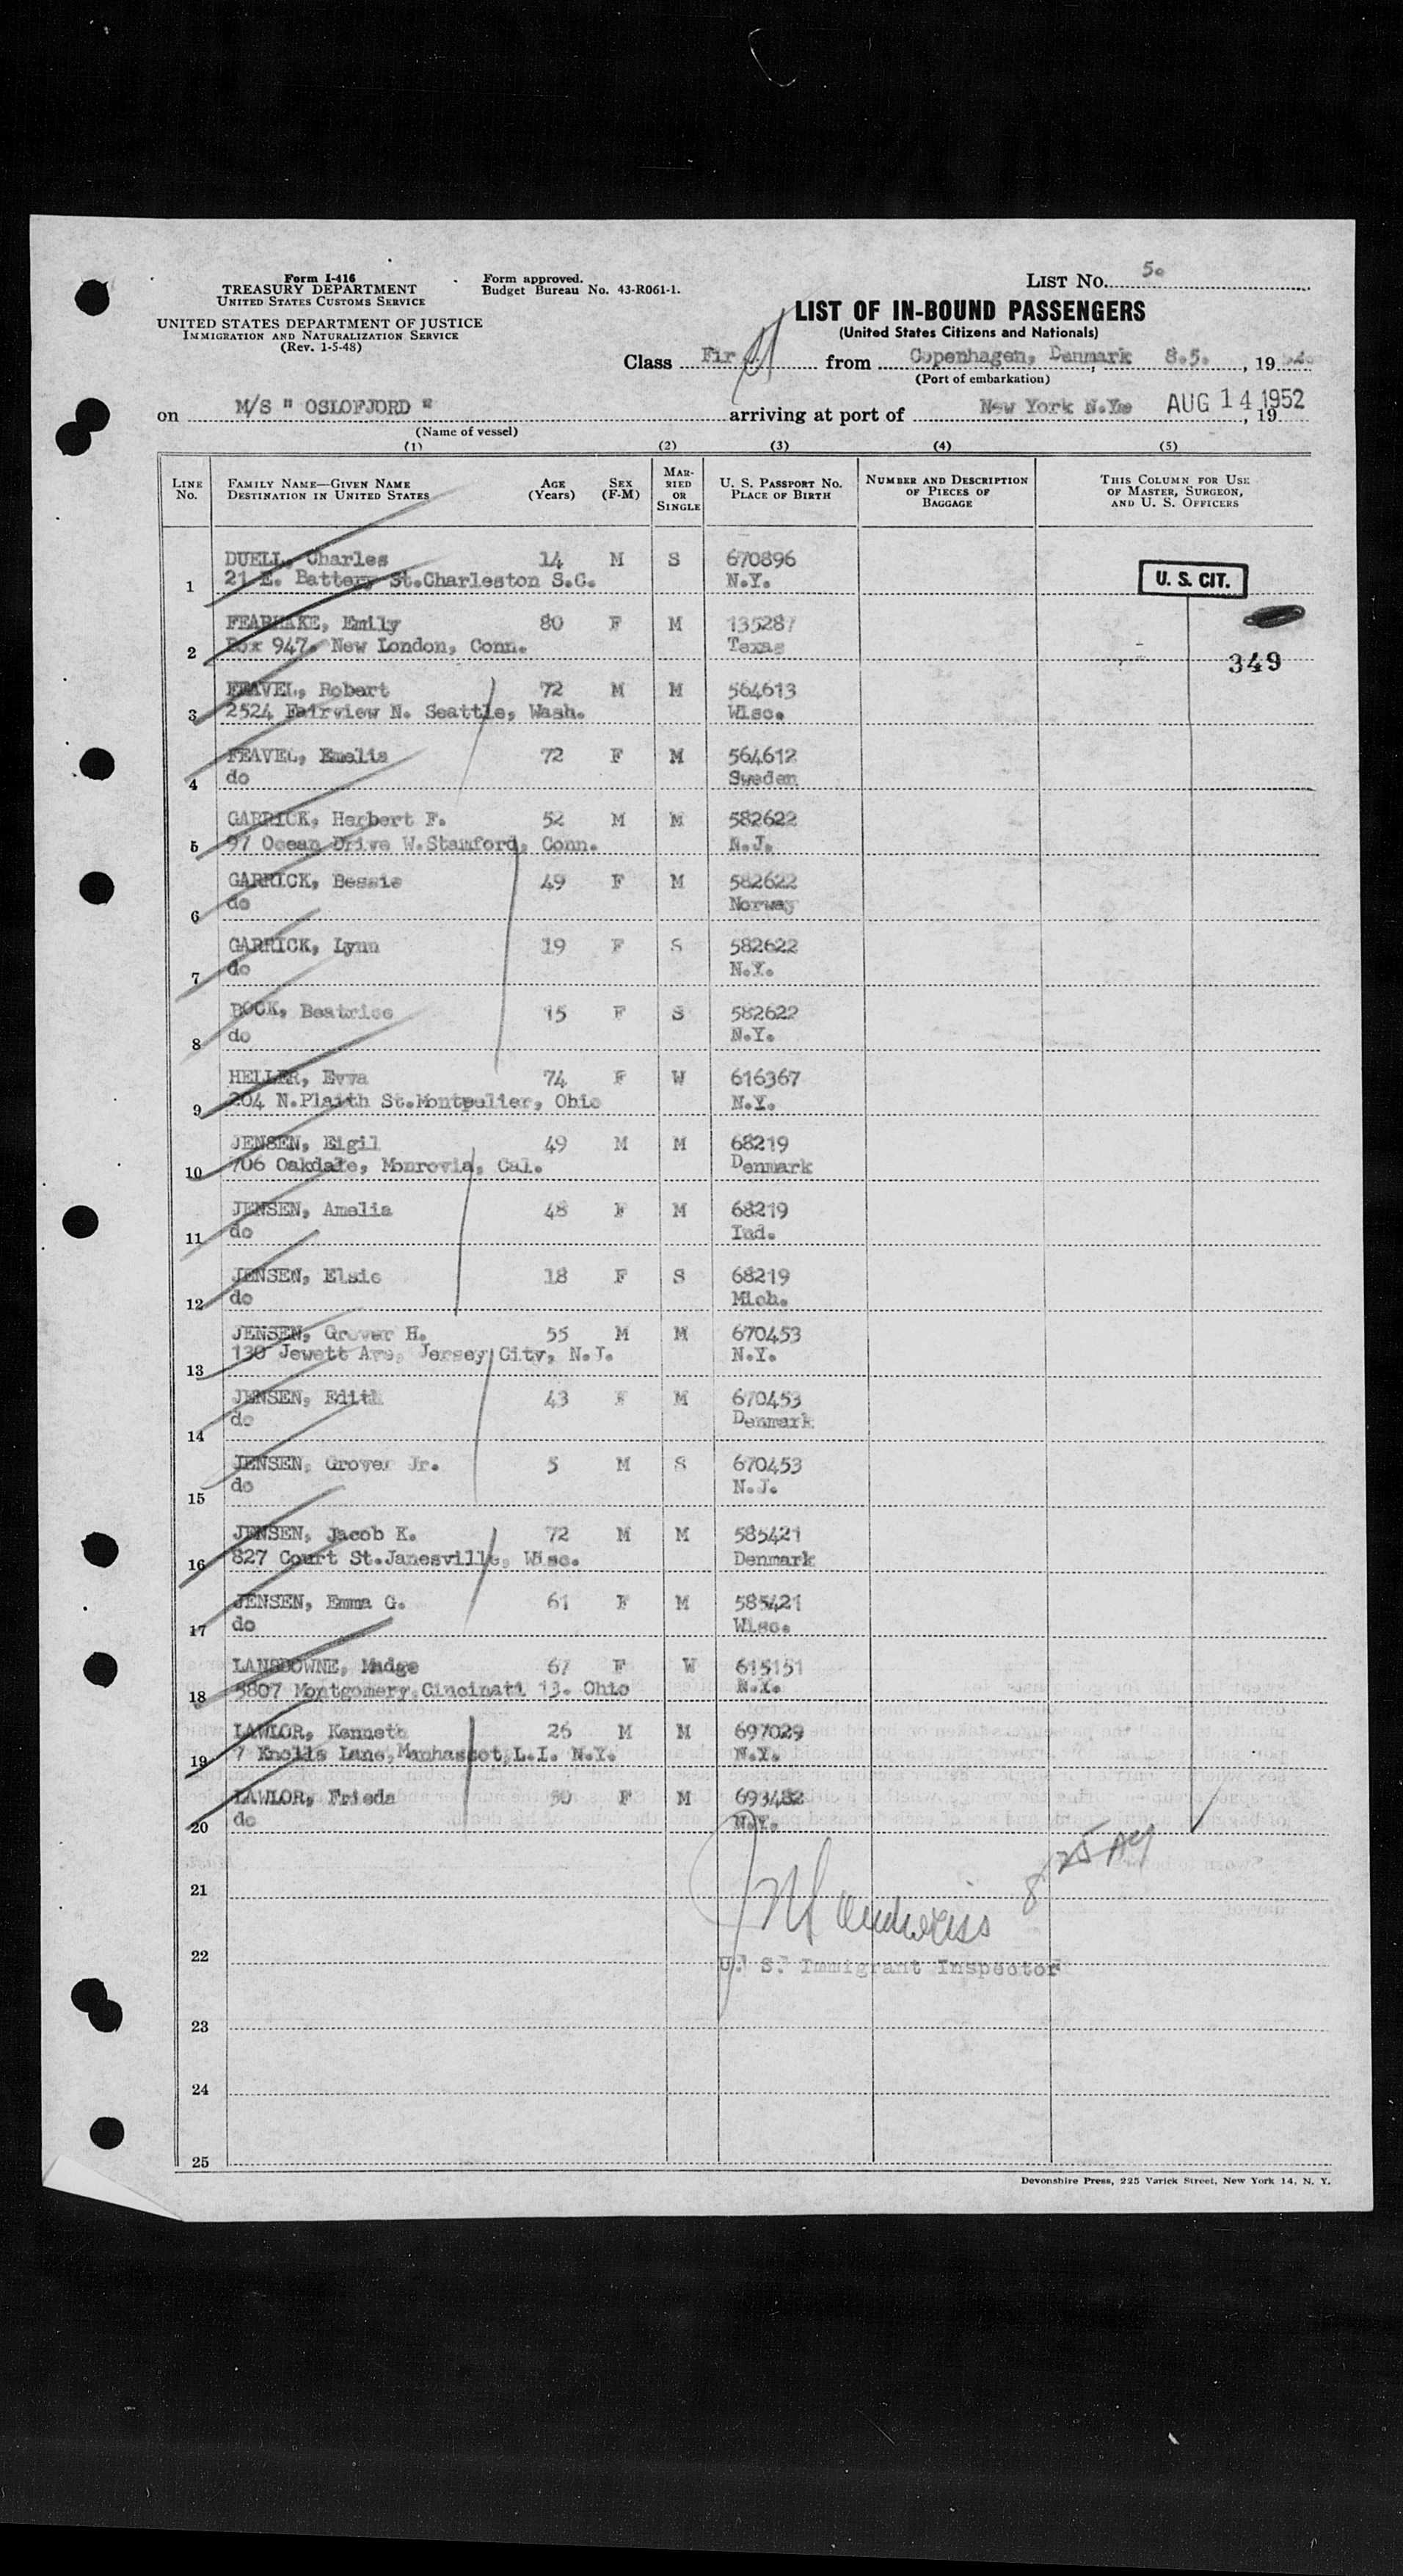 Form I-416
TREASURY DEPARTMENT
UNITED STATES CUSTOMS SERVICE
UNITED STATES DEPARTMENT OF JUSTICE
IMMIGRATION AND NATURALIZATION SERVICE
(Rev. 1-5-48)
Form approved.
Budget Bureau No. 43-R061-1.
LIST No. 5.
LIST OF IN-BOUND PASSENGERS
(United States Citizens and Nationals)
Class Fir from Copenhagen, Denmark 8.5. , 19 52.
(Port of embarkation)
on M/S " OSLOFJORD " arriving at port of New York N.Y. AUG 14 1952 , 19
(Name of vessel)
(1) (2) (3) (4) (5)
LINE No. FAMILY NAME—GIVEN NAME DESTINATION IN UNITED STATES AGE (Years) SEX (F-M) MARRIED OR SINGLE U. S. PASSPORT No. PLACE OF BIRTH NUMBER AND DESCRIPTION OF PIECES OF BAGGAGE THIS COLUMN FOR USE OF MASTER, SURGEON, AND U. S. OFFICERS
DUELL, Charles 14 M S 670896
1 21 E. Battery St.Charleston S.C. N.Y. U. S. CIT.
Emily 80 F M 135287
2 Box 947. New London, Conn. Texas 349
FEAVEL, Robert 72 M M 564613
3 2524 Fairview N. Seattle, Wash. Wisc.
FEAVEL, Emelia 72 F M 564612
4 do Sweden
GARRICK, Herbert F. 52 M M 582622
5 97 Ocean Drive W.Stamford, Conn. N.J.
GARRICK, Bessie 49 F M 582622
6 do Norway
GARRICK, Lynn 19 F S 582622
7 do N.Y.
BOCK, Beatrice 15 F S 582622
8 do N.Y.
HELLER, Evva 74 F W 616367
9 204 N.Plaith St.Montpelier, Ohio N.Y.
JENSEN, Eigil 49 M M 68219
10 706 Oakdale, Monrovia, Cal. Denmark
JENSEN, Amelia 48 F M 68219
11 do Ind.
JENSEN, Elsie 18 F S 68219
12 do Mich.
JENSEN, Grover H. 55 M M 670453
13 130 Jewett Ave, Jersey City, N.J. N.Y.
JENSEN, Edith 43 F M 670453
14 do Denmark
JENSEN, Grover Jr. 5 M S 670453
15 do N.J.
JENSEN, Jacob K. 72 M M 585421
16 827 Court St.Janesville, Wisc. Denmark
JENSEN, Emma G. 61 F M 585421
17 do Wisc.
LANSDOWNE, Madge 67 F W 615151
18 5807 Montgomery,Cincinati 13. Ohio N.Y.
LAWLOR, Kenneth 26 M M 697029
19 7 Knolls Lane,Manhasset,L.I. N.Y. N.Y.
LAWLOR, Frieda 50 F M 693482
20 do N.Y.
21
22 U. S. Immigrant Inspector
23
24
25
Devonshire Press, 225 Varick Street, New York 14, N. Y.